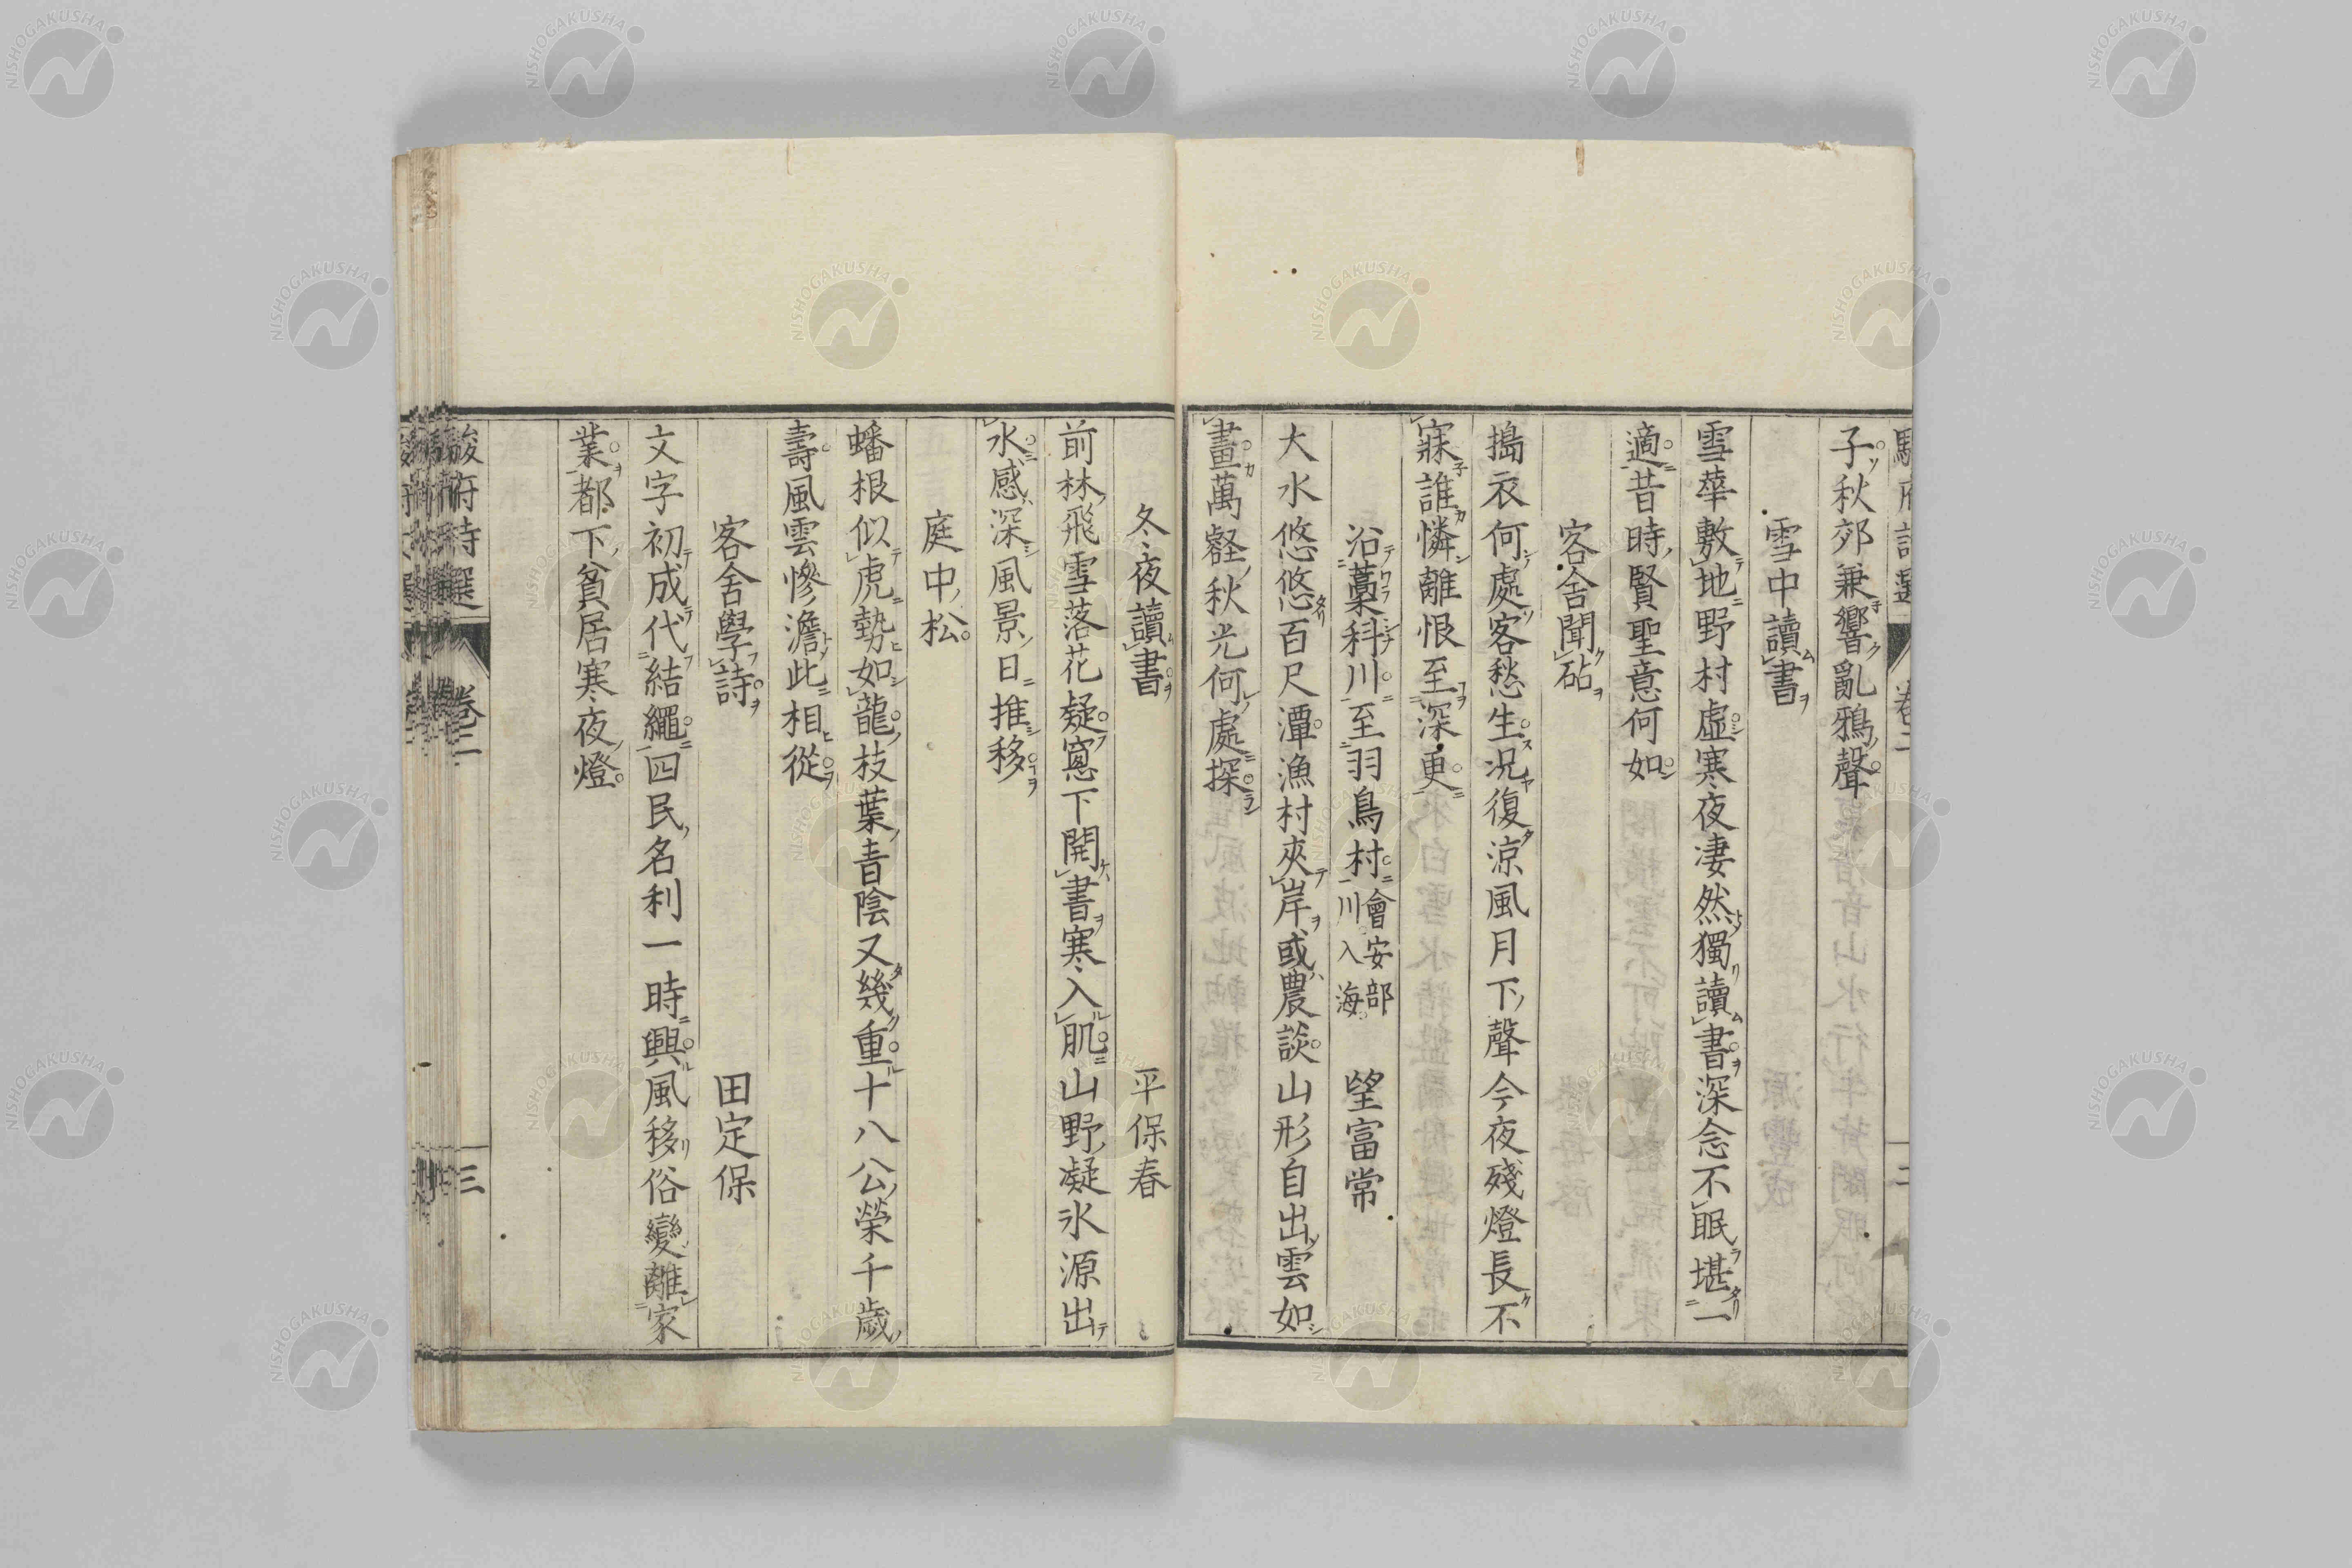 子秋郊兼響亂鴉聲
雪中讀書
雪華敷地野村虛寒夜凄然獨讀書深念不眠堪一
適昔時賢聖意何如
客舍聞砧
搗衣何處客愁生況復涼風月下聲今夜殘燈長不
寐誰憐離恨至深更
沿藁科川至羽鳥村會安部川入海 望富常
大水悠悠百尺潭漁村夾岸或農談山形自出雲如
畫萬壑秋光何處探
冬夜讀書 平保春
前林飛雪落花疑窓下開書寒入肌山野凝氷源出
水感深風景日推移
庭中松
蟠根似虎勢如龍枝葉青陰又幾重十八公榮千歲
壽風雲慘澹此相從
客舍學詩 田定保
文字初成代結繩四民名利一時興風移俗變離家
業都下貧居寒夜燈
駿府詩選 卷二 三
NISHOGAKUSHA